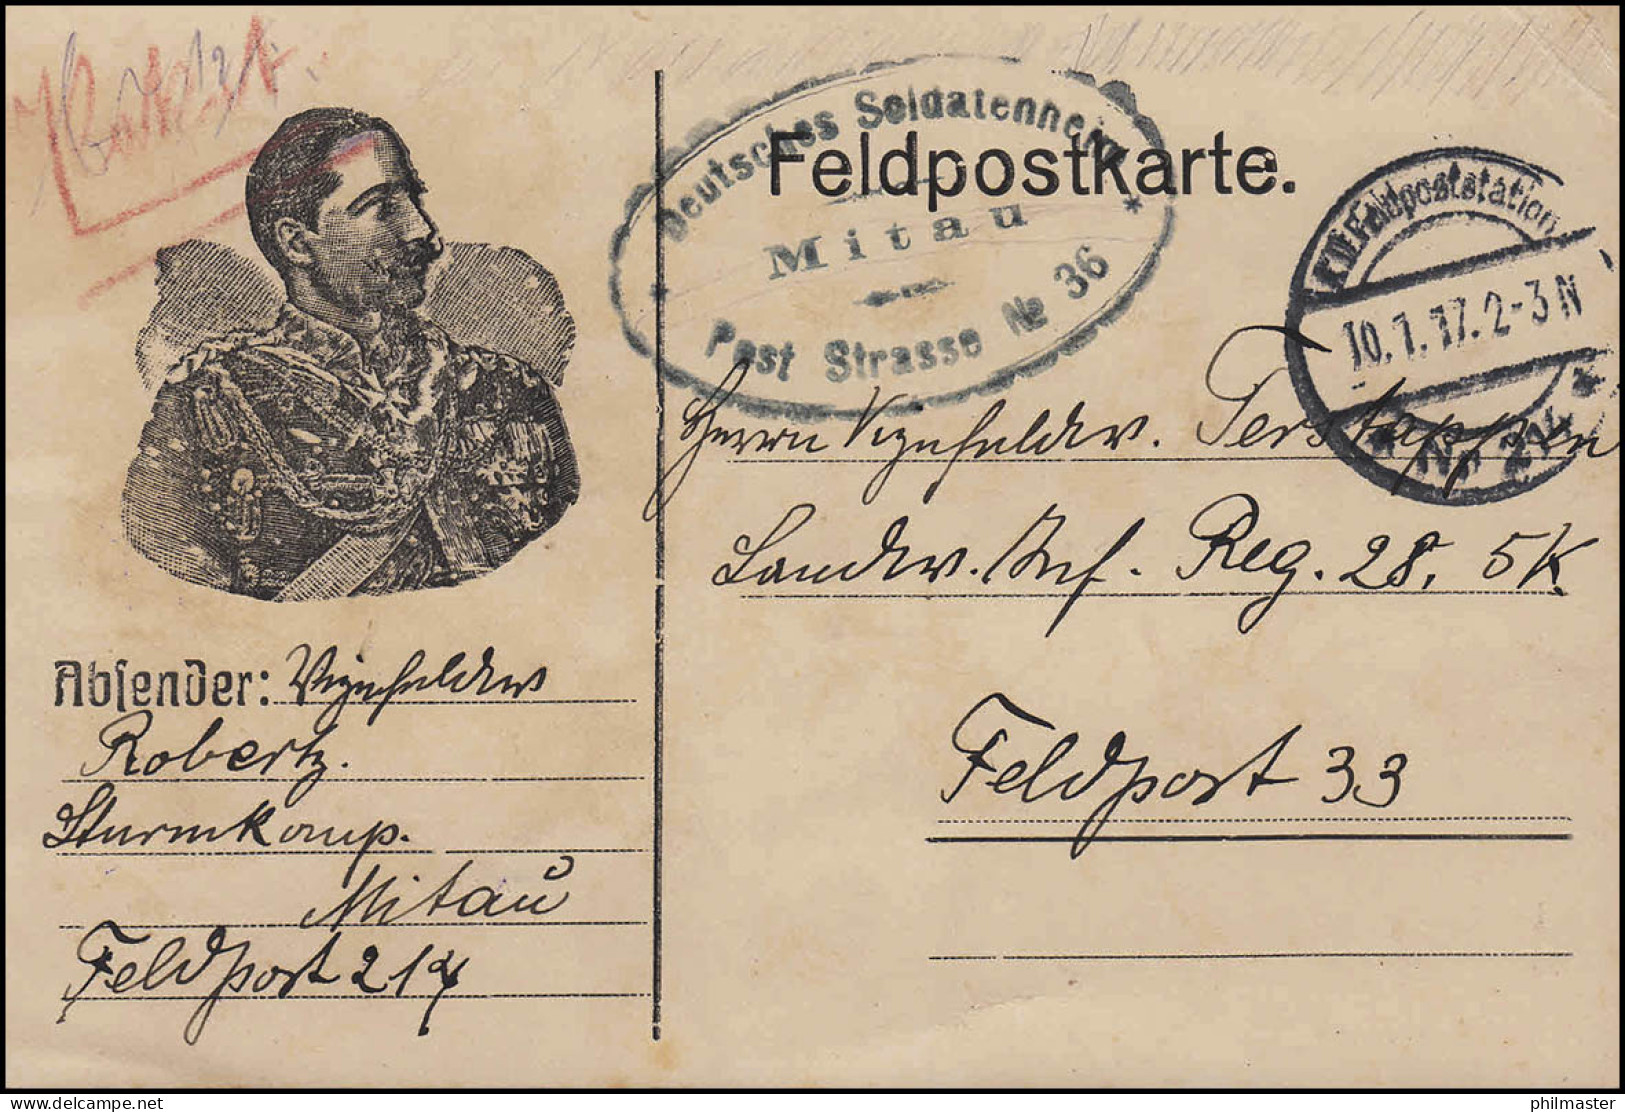 Feldpostkarte.
Deutsches Soldatenheim
Mitau
Post Strasse № 36
K.D. Feldpoststation
10.1.17. 2-3 N
* Nr. 214 *
Herrn Vizefeldw. Terstappen
Landw. Inf. Reg. 28. 5K.
Feldpost 33
Abſender: Vizefeldw
Robertz.
Sturmkomp.
Mitau
Feldpost 214
philmaster